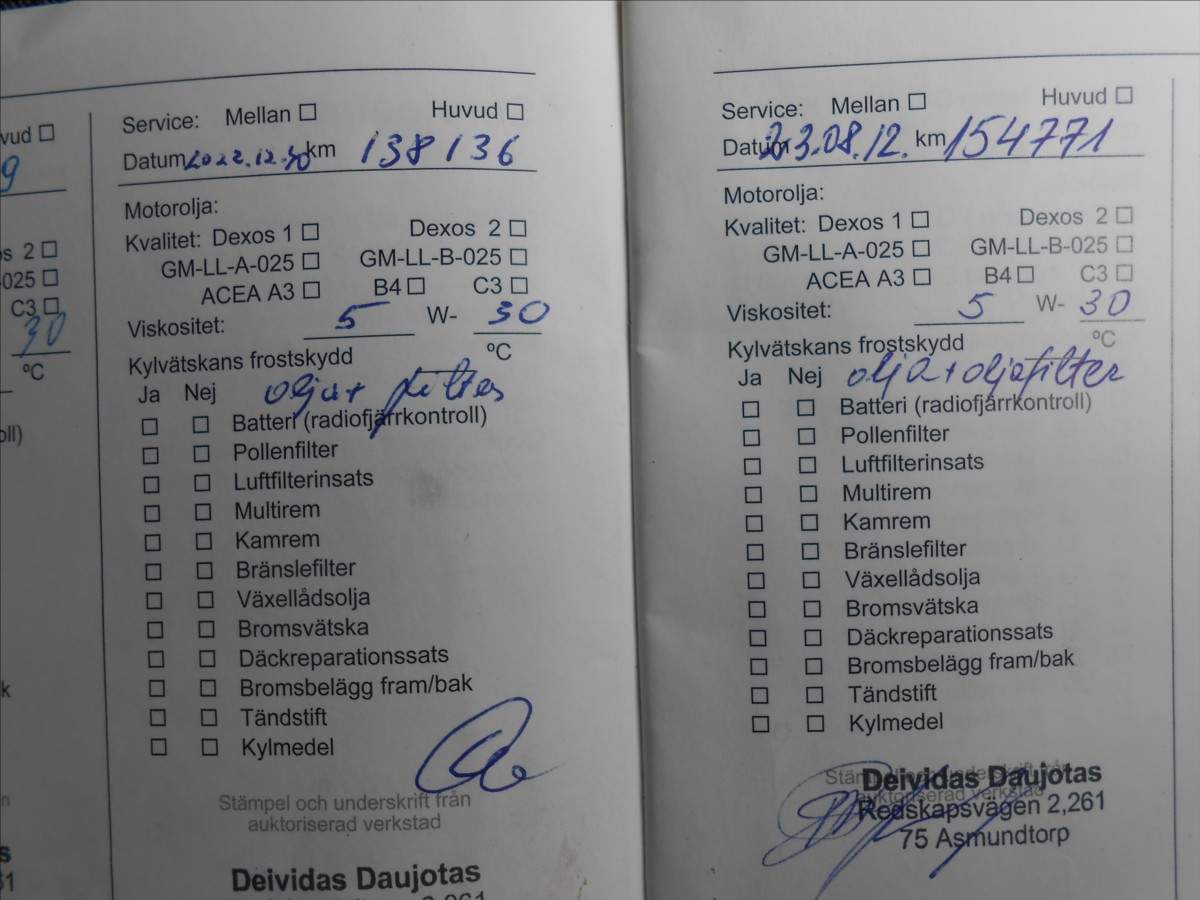 vud
9
os 2
-025
C3
30
°C
oll)
k
n
s
61
Service: Mellan Huvud
Datum 2022.12.30 km 138136
Motorolja:
Kvalitet: Dexos 1 Dexos 2
GM-LL-A-025 GM-LL-B-025
ACEA A3 B4 C3
Viskositet: 5 W- 30
Kylvätskans frostskydd °C
Ja Nej olja+ filter
Batteri (radiofjärrkontroll)
Pollenfilter
Luftfilterinsats
Multirem
Kamrem
Bränslefilter
Växellådsolja
Bromsvätska
Däckreparationssats
Bromsbelägg fram/bak
Tändstift
Kylmedel
Stämpel och underskrift från
auktoriserad verkstad
Deividas Daujotas
Service: Mellan Huvud
Datum 23.08.12. km 154771
Motorolja:
Kvalitet: Dexos 1 Dexos 2
GM-LL-A-025 GM-LL-B-025
ACEA A3 B4 C3
Viskositet: 5 W- 30
Kylvätskans frostskydd °C
Ja Nej olja+oljefilter
Batteri (radiofjärrkontroll)
Pollenfilter
Luftfilterinsats
Multirem
Kamrem
Bränslefilter
Växellådsolja
Bromsvätska
Däckreparationssats
Bromsbelägg fram/bak
Tändstift
Kylmedel
Stämpel och underskrift från
auktoriserad verkstad
Deividas Daujotas
Redskapsvägen 2,261
75 Asmundtorp